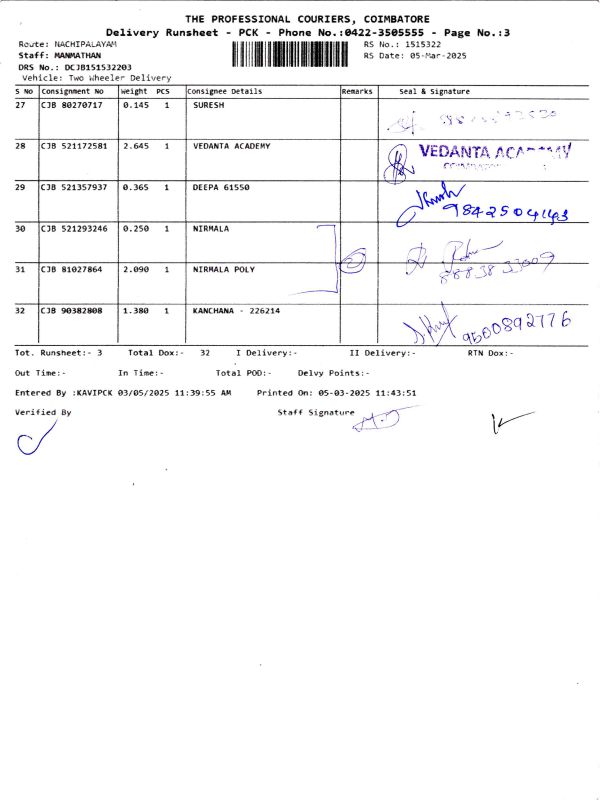 THE PROFESSIONAL COURIERS, COIMBATORE
Delivery Runsheet - PCK - Phone No.:0422-3505555 - Page No.:3
Route: NACHIPALAYAM RS No.: 1515322
Staff: MANMATHAN RS Date: 05-Mar-2025
DRS No.: DCJB151532203
Vehicle: Two Wheeler Delivery
S No Consignment No Weight PCS Consignee Details Remarks Seal & Signature
27 CJB 80270717 0.145 1 SURESH
28 CJB 521172581 2.645 1 VEDANTA ACADEMY VEDANTA
29 CJB 521357937 0.365 1 DEEPA 61550
9842504143
30 CJB 521293246 0.250 1 NIRMALA
31 CJB 81027864 2.090 1 NIRMALA POLY 2
8883833009
32 CJB 90382808 1.380 1 KANCHANA - 226214 9500892776
Tot. Runsheet:- 3 Total Dox:- 32 I Delivery:- II Delivery:- RTN Dox:-
Out Time:- In Time:- Total POD:- Delvy Points:-
Entered By :KAVIPCK 03/05/2025 11:39:55 AM Printed On: 05-03-2025 11:43:51
Verified By Staff Signature